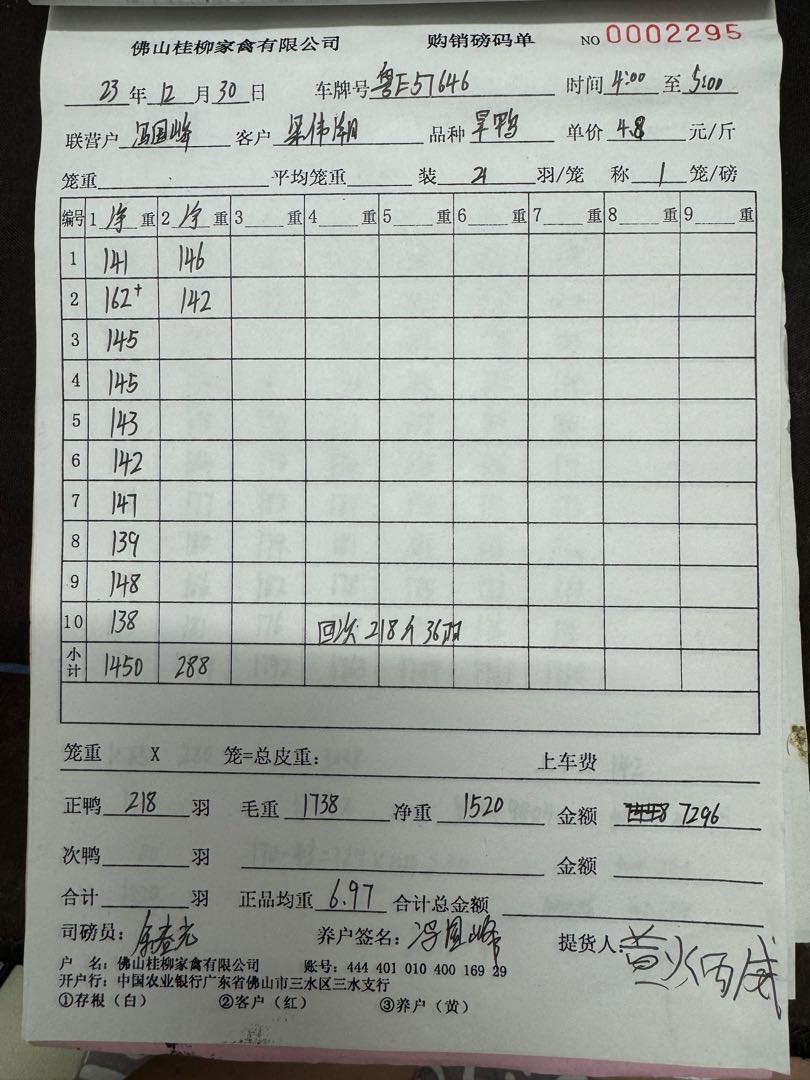 佛山桂柳家禽有限公司 购销磅码单 NO 0002295
23 年 12 月 30 日 车牌号 粤E57646 时间 4:00 至 5:00
联营户 冯国峰 客户 梁伟潮 品种 旱鸭 单价 4.8 元/斤
笼重 平均笼重 装 21 羽/笼 称 1 笼/磅
编号 1 净 重 2 净 重 3 重 4 重 5 重 6 重 7 重 8 重 9 重
1 141 146
2 162+ 142
3 145
4 145
5 143
6 142
7 147
8 139
9 148
10 138 回次 218斤 36羽
小计 1450 288
笼重 X 笼=总皮重: 上车费
正鸭 218 羽 毛重 1738 净重 1520 金额 7296
次鸭 羽 金额
合计 羽 正品均重 6.97 合计总金额
司磅员: 养户签名: 冯国峰 提货人:
户 名: 佛山桂柳家禽有限公司 账号: 444 401 010 400 169 29
开户行: 中国农业银行广东省佛山市三水区三水支行
①存根(白) ②客户(红) ③养户(黄)